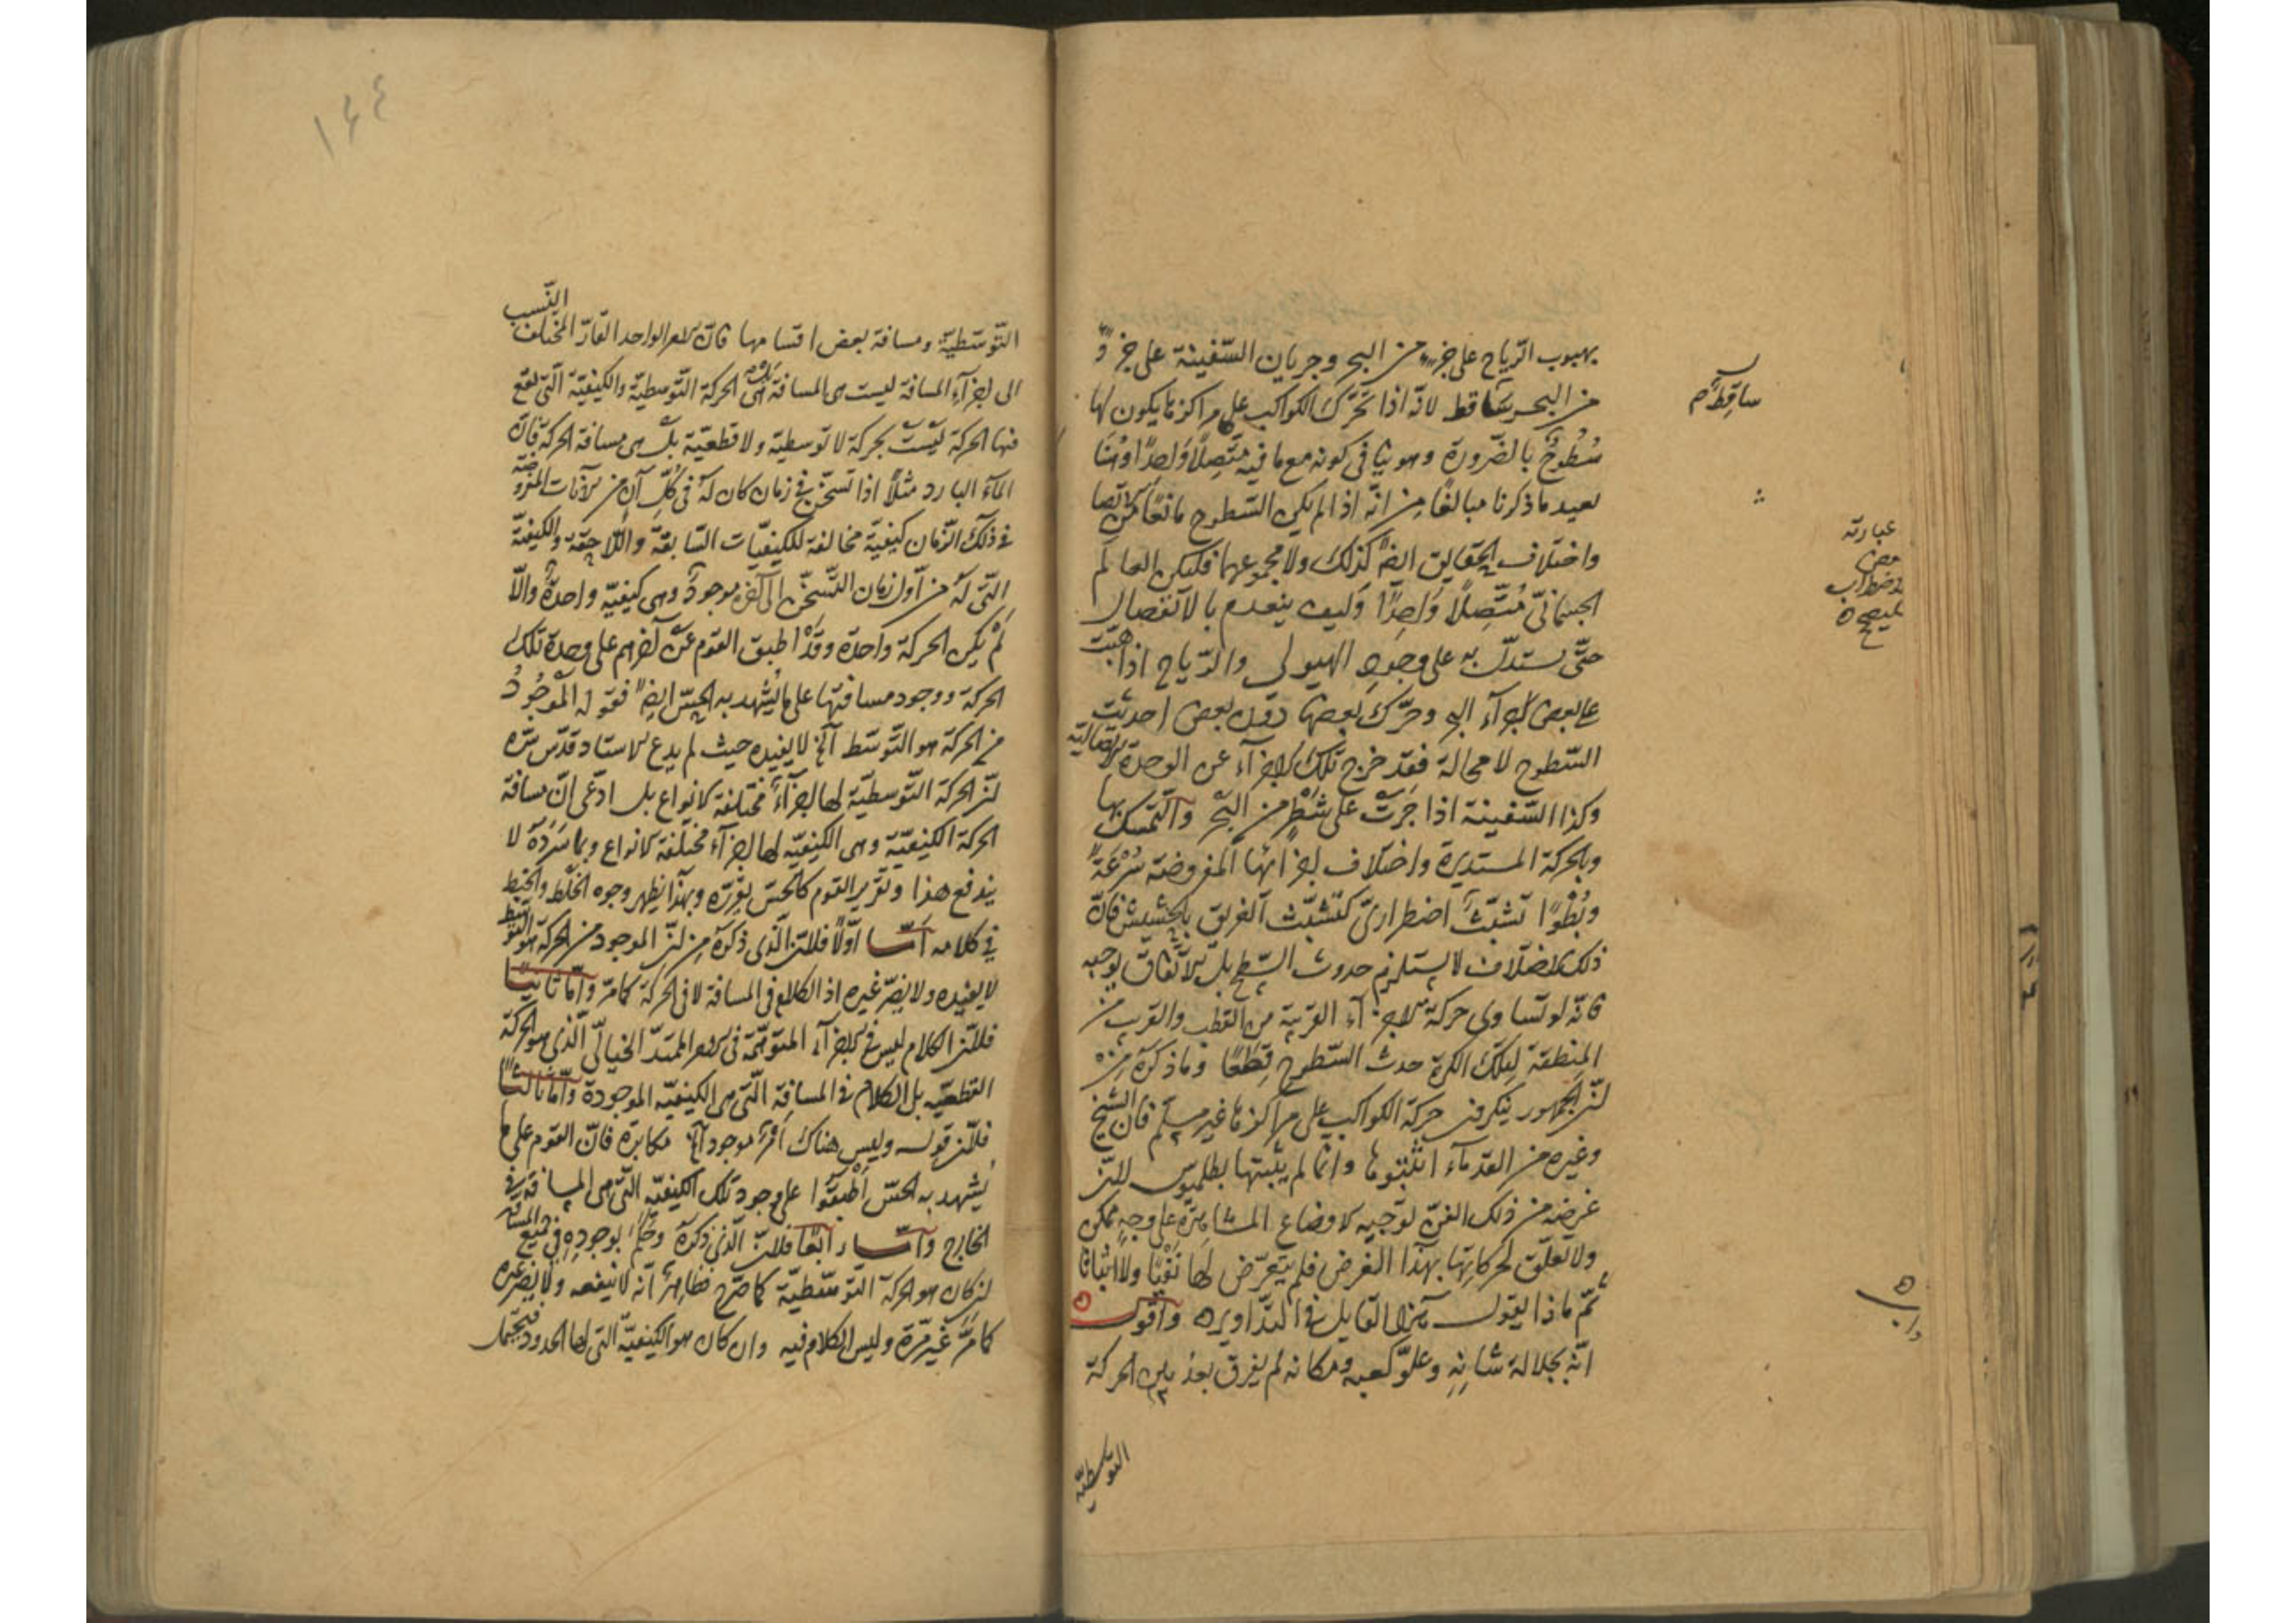 بهبوب الرّياح على جزء من البحر وجريان السّفينة على جزء
من البحر ساقط لانّه اذا تحرّك الكواكب على مراكزها يكون لها
سُطُوحٌ بالضّرورة وهو ينافى كونه مع ما فيه متّصلًا واحدًا وهنا
بعيد ما ذكرنا مبالغًا من انّه اذ لم يكن السّطوح مانعًا من الاتصا
واختلاف الحقايق ايضًا كذلك ولا مجموعهما فليكن العالم
الجسمانىّ مُتّصِلًا واحِدًا وكيف ينعدم بالانفصال
حتّى يستدلّ به على وجود الهيولى والرّياح اذا هبّت
على بعض اجزآء البحر وحرّك بعضها دون بعض احدثت
السّطوح لا محالة فقد خرج تلك الاجزآء عن الوحدة الاتصاليّة
وكذا السّفينة اذا جَرَتْ على شَطْرٍ من البحر والتمسّك بها
وبالحركة المستديرة واختلاف اجزائها المفروضة سُرْعَةً
وبُطْوءًا تشبّث اضطرارىّ كتشبّث الغريق بالحشيش فانّ
ذلك الاختلاف لا يستلزم حدوث السّطح بل الاتّفاق يوجبه
فانّه لو تساوى حركة الاجزآء القريبة من القطب والقرب من
المنطقة لتلك الكرة حدث السّطوح قطعًا وما ذكره من
انّ الجمهور ينكرون حركة الكواكب على مراكزها غير مسلّم فان الشيخ
وغيره من القدمآء اثبتوها وانّما لم يثبتها بطلميوس لانّ
غرضه من ذلك الفنّ توجيه الاوضاع المشاهدة على وجه ممكن
ولا تعلّق لحركاتها بهذا الغرض فلم يتعرّض لها نفيًا ولا اثباتا
ثمّ ما ذا يقول هذا القايل فى التّداوير واقول
انّه بجلالة شانه وعلوّ كعبه ومكانه لم يفرق بعد بين الحركة
التوسطيّة
ساقِطٌ م
عبارته
بعض
اضطراب
ه
التّوسّطيّة ومسافة بعض اقسامها فانّ الامر الواحد القارّ المختلف النّسب
الى اجزآء المسافة ليست هى المسافة بل هى الحركة التّوسطيّة والكيفيّة الّتى تقع
فيها الحركة ليست بحركة لا توسطيّة ولا قطعيّة بل هى مسافة الحركة فانّ
المآء البارد مثلًا اذا تسخّن فى زمان كان له فى كلّ آن من الآنات المفروضة
فى ذلك الزّمان كيفيّة مخالفة للكيفيّات السّابقة واللّاحقة والكيفيّة
الّتى له من اوّل زمان التّسخّن الى آخره موجودة وهى كيفيّة واحدة والّا
لم يكن الحركة واحدة وقد اطبق القوم عن آخرهم على وحدة تلك
الحركة ووجود مسافتها على ما يُشهد به الحِسّ ايضًا فقوله الموجُودُ
من الحركة هو التّوسّط آلخ لا يفيده حيث لم يدع الاستاد قدّس سّره
انّ الحركة التّوسطيّة لها اجزآء مختلفة الانواع بل ادّعى انّ مسافة
الحركة الكيفيّة وهى الكيفيّة لها اجزآء مختلفة الانواع وبما سَرَدَه لا
يندفع هذا وتقرير القوم كالحسّ يقرّره وبهذا يظهر وجوه الخلط والخبط
فى كلامه امّا اوّلًا فلانّ الّذى ذكره من انّ الموجود من الحركة هو التوسّط
لا يفيده ولا يضرّ غيره اذ الكلام فى المسافة لا فى الحركة كما مرّ وامّا ثانيًا
فلانّ الكلام ليس فى الاجزآء المتوهّمة فى الامر الممتدّ الخيالىّ الّذى هو الحركة
القطعيّه بل الكلام فى المسافة الّتى هى الكيفيّة الموجودة وامّا ثالثًا
فلانّ قوله وليس هناك امرٌ موجود آلخ مكابرة فانّ القوم على ما
يُشهد به الحسّ اَطْبَقُوا على وجود تلك الكيفيّة الّتى هى المسافة فى
الخارج وامّا رابعًا فلانّ الّذى ذكره وحكم بوجوده فى جميع المسافة
ان كان هو الحركة التّوسّطيّة كما صرّح فظاهرٌ انّه لا ينفعه ولا يضرّ غيره
كما مرّ غير مرّة وليس الكلام فيه وان كان هو الكيفيّة التى لها الحدود فيحتمل
١٤٤